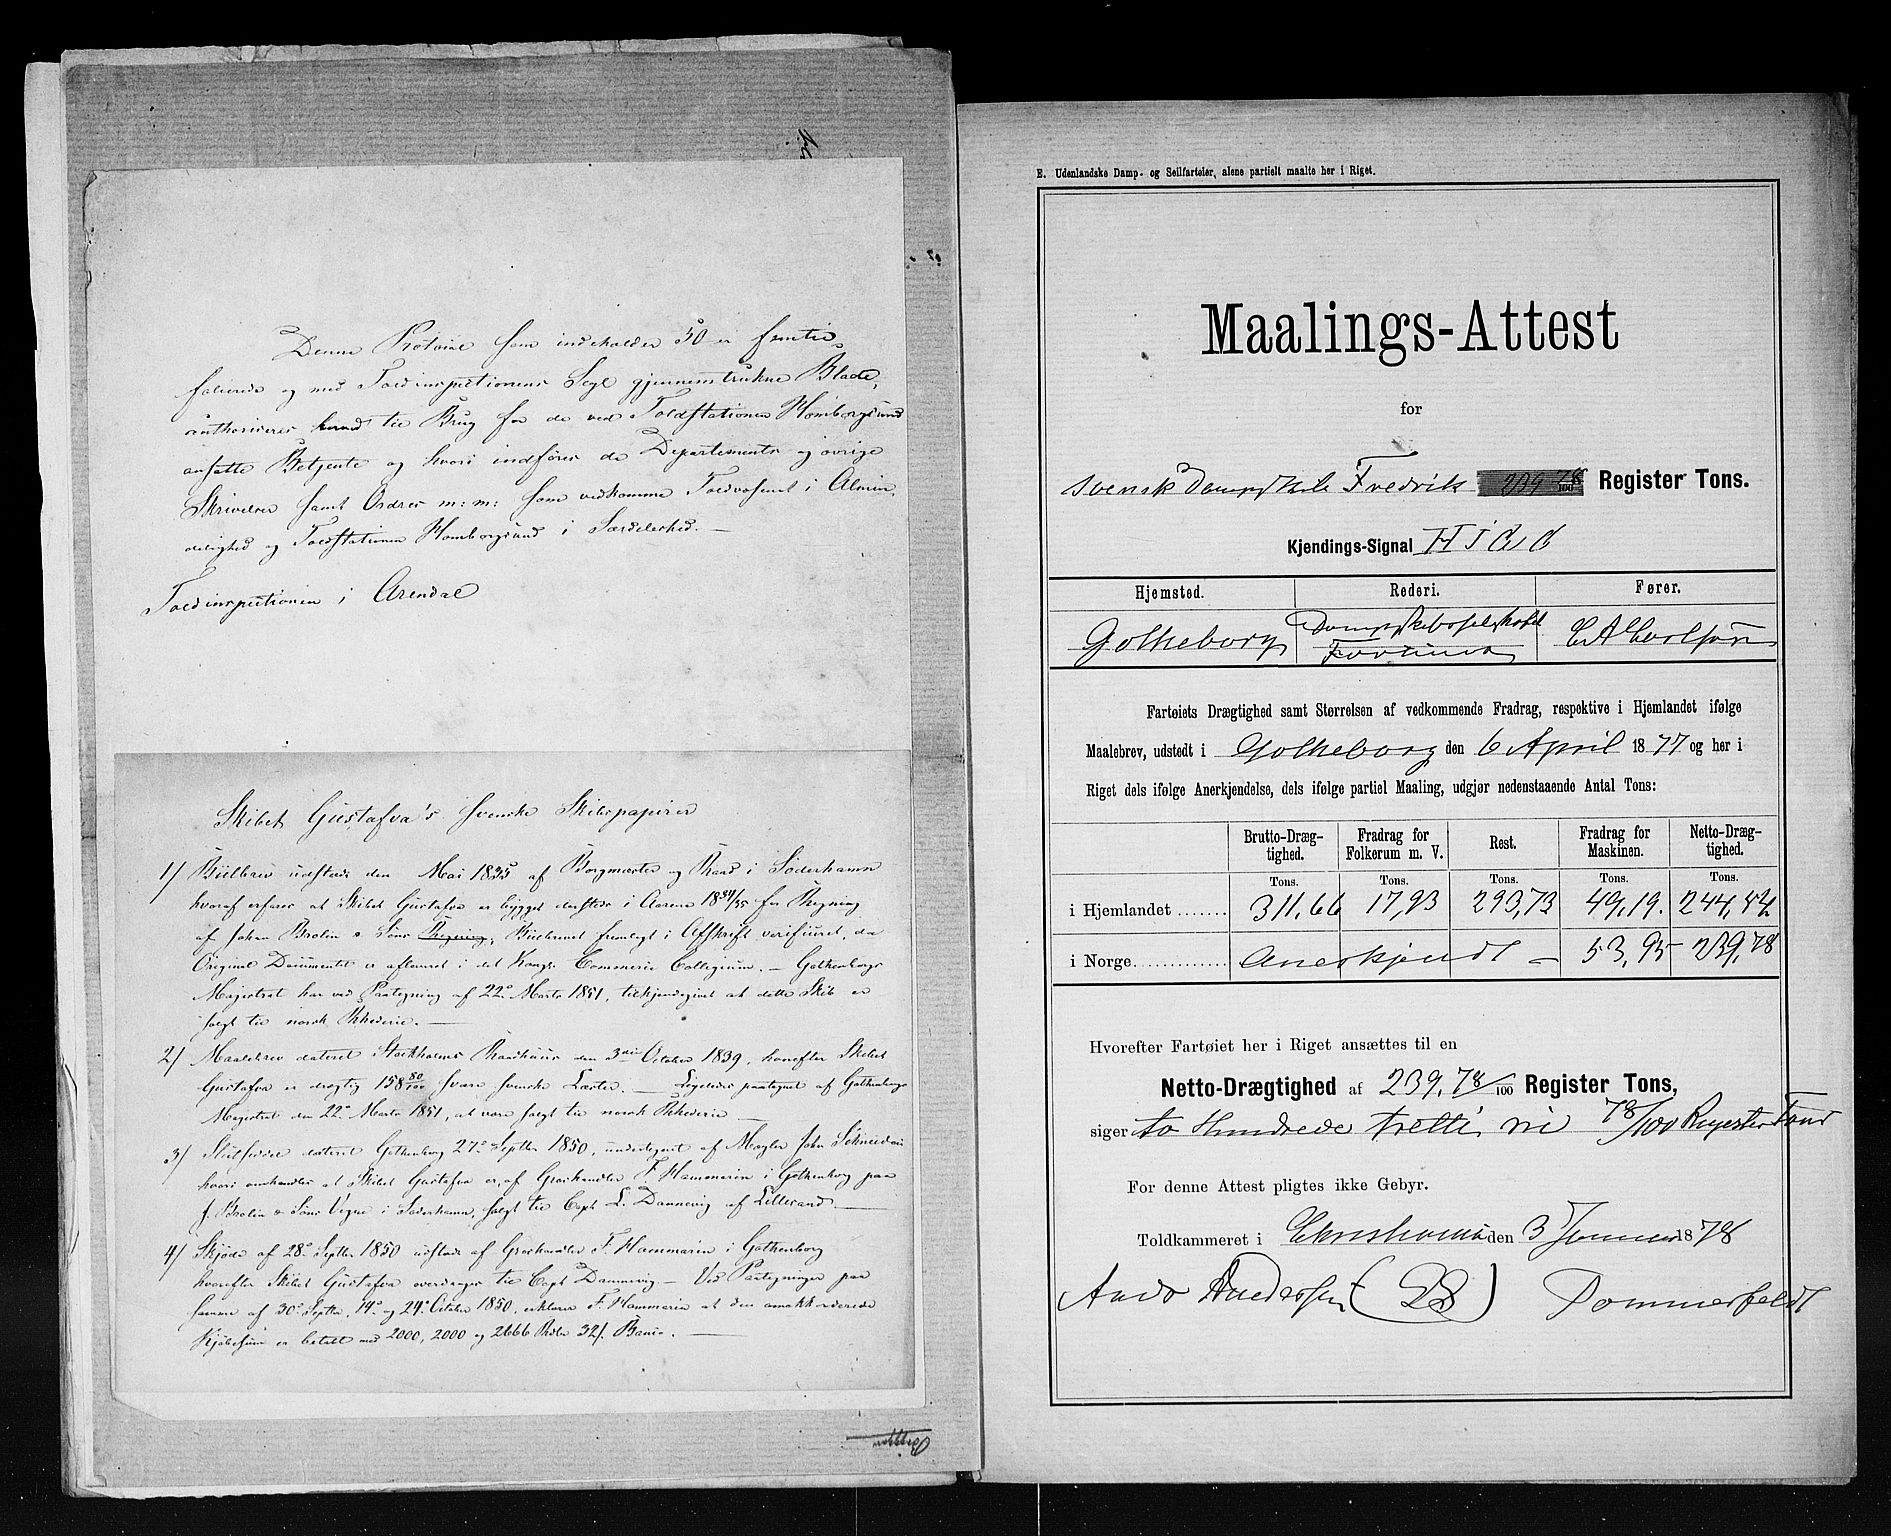 Denne Protocol som indeholder 50 er femti
folierede og med Toldinspectionens Segl gjennemtrukne Blade,
authoriseres herved til Brug for de ved Toldstationen Homborgsund
ansatte Betjente og hvori indføres de Departements og øvrige
Skrivelser samt Ordres m: m: som vedkomme Toldvæsenet i Almin,
delighed og Toldstationen Homborgsund i Særdeleshed. —
Toldinspectionen i Arendal
Skibet Gustafva's svenske Skibspapirer
1) Biilbrev udstedt den Mai 1835 af Borgmester og Raad i Söderhamn
hvoraf erfares at Skibet Gustafva er bygget dersteds i Aarene 1834/35 for Regning
af Johan Brolin & Söns Regning, Biilbrevet fremlagt i Afskrift verificeret, da
Original Documentet er afleveret i det Kongl Commerce Collegium. — Gothenborgs
Magistrat har ved Paategning af 22de Marts 1851, tilkjendegivet at dette Skib er
solgt til norsk Rhederie. —
2) Maalebrev dateret Stockholms Raadhuus den 3die October 1839, hvorefter Skibet
Gustafva er drægtig 158 80/100 svære svenske Læster. — Ligeledes paategnet af Gothenborgs
Magistrat den 22de Marts 1851, at være solgt til norsk Rhederie —
3) Slutseddel dateret Gothenborg 27de Septbr 1850, undertegnet af Mægler John Schneidau
hvori omhandles at Skibet Gustafva er, af Groshandler F. Hammarin i Gothenborg paa
J. Brolin & Söns Vegne i Söderhamn, solgt til Capt L. Dannevig af Lillesand. —
4) Skjøde af 28de Septbr 1850 udstedt af Groshandler F. Hammarin i Gothenborg
hvorefter Skibet Gustafva overdrages til Capt Dannevig — Ved Paategninger paa
samme af 30te Septbr, 14de og 24de October 1850, erklærer F. Hammarin at den omakkorderede
Kjøbesum er betalt med 2000, 2000 og 2666 Rdlr 32/. Banco. —
E. Udenlandske Damp- og Seilfartøier, alene partielt maalte her i Riget.
Maalings-Attest
for
Svensk Dampskib Fredrik 239 78/100 Register Tons.
Kjendings-Signal
Hjemsted. Rederi. Fører.
Gotheborg Dampskibsselskabet C A Carlson
Fortuna
Fartøiets Drægtighed samt Størrelsen af vedkommende Fradrag, respektive i Hjemlandet ifølge
Maalebrev, udstedt i Gotheborg den 6 April 1877 og her i
Riget dels ifølge Anerkjendelse, dels ifølge partiel Maaling, udgjør nedenstaaende Antal Tons:
Brutto-Dræg- Fradrag for Rest. Fradrag for Netto-Dræg-
tighed. Folkerum m. V. Maskinen. tighed.
Tons. Tons. Tons. Tons. Tons.
i Hjemlandet ....... 311,66 17,93 293,73 49,19. 244,54
i Norge.............. Anerkjendt — 53,95 239,78
Hvorefter Fartøiet her i Riget ansættes til en
Netto-Drægtighed af 239,78/100 Register Tons,
siger to Hundrede tretti ni 78/100 Register Tons
For denne Attest pligtes ikke Gebyr.
Toldkammeret i Christiania den 3 Januar 1878
Andr Andersen (LS) Sommerfeldt